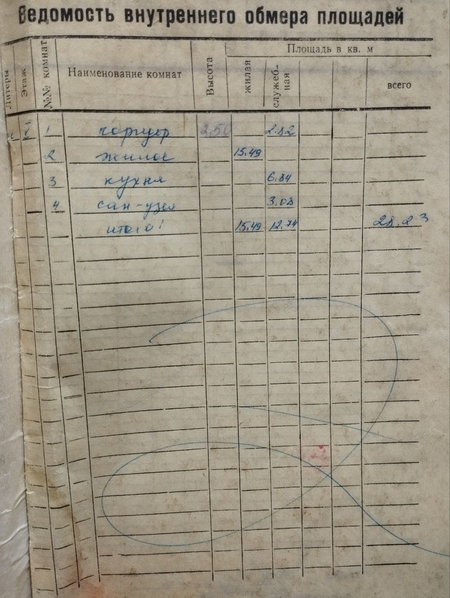 Ведомость внутреннего обмера площадей
Литеры Этаж №№ комнат Наименование комнат Высота Площадь в кв. м
жилая служебная всего
1 коридор 2.50 2.82
2 жилое 15.49
3 кухня 6.84
4 сан-узел 3.08
итого: 15.49 12.74 28.23